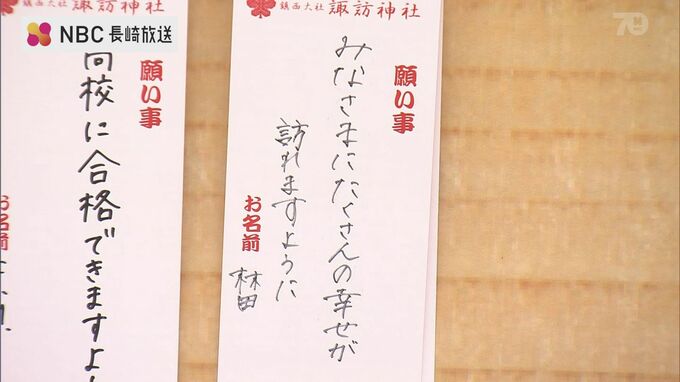 NBC 長崎放送
鎮西大社 諏訪神社
願い事
みなさまにたくさんの幸せが
訪れますように
お名前
鎮西大社 諏訪神社
願い事
高校に合格できますよ
お名前